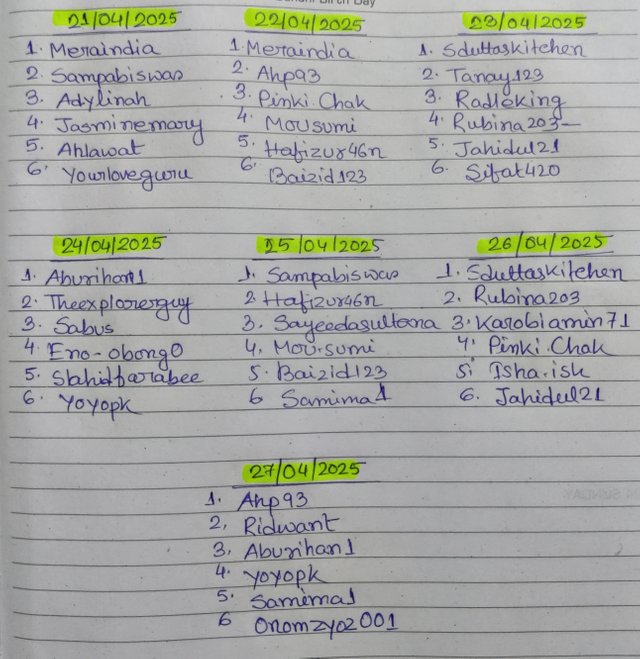 Birth Day
21/04/2025
1. Meraindia
2. Sampabiswas
3. Adylinah
4. Jasminemary
5. Ahlawat
6. Yourloveguru
22/04/2025
1. Meraindia
2. Ahp93
3. Pinki.Chak
4. Mousumi
5. Hafizur46n
6. Baizid123
23/04/2025
1. Sduttaskitchen
2. Tanay123
3. Radleking
4. Rubina203
5. Jahidul21
6. Sifat420
24/04/2025
1. Aburihan1
2. Theexplorerguy
3. Sabus
4. Eno-obong0
5. Shahidfarabee
6. Yoyopk
25/04/2025
1. Sampabiswas
2. Hafizur46n
3. Sayeedasultana
4. Mou.sumi
5. Baizid123
6 Samima1
26/04/2025
1. Sduttaskitchen
2. Rubina203
3. Karobiamin71
4. Pinki.Chak
5. Isha.ish
6. Jahidul21
27/04/2025
1. Ahp93
2. Ridwant
3. Aburihan1
4. Yoyopk
5. Samima1
6 Onomzyo2001